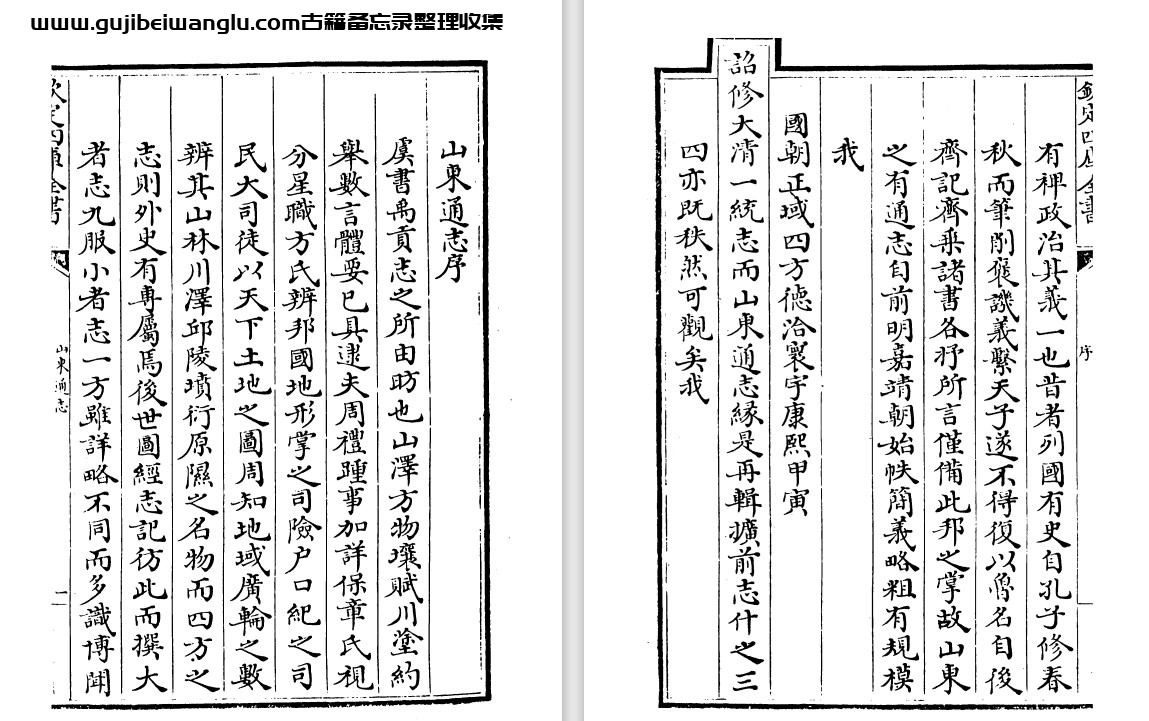 www.gujibeiwanglu.com古籍备忘录整理收集
山東通志序
虞書禹貢志之所由昉也山澤方物壤賦川塗約
舉數言體要已具逮夫周禮踵事加詳保章氏視
分星職方氏辨邦國地形掌之司險户口紀之司
民大司徒以天下土地之圖周知地域廣輪之數
辨其山林川澤邱陵墳衍原隰之名物而四方之
志則外史有專屬焉後世圖經志記彷此而撰大
者志九服小者志一方雖詳略不同而多識博聞
欽定四庫全書
山東通志
一
欽定四庫全書
序
有裨政治其義一也昔者列國有史自孔子修春
秋而筆削褒譏義繫天子遂不得復以魯名自後
齊記齊乗諸書各抒所言僅備此邦之掌故山東
之有通志自前明嘉靖朝始帙簡義略粗有規模
我
國朝正域四方德洽寰宇康熙甲寅
詔修大清一統志而山東通志緣是再輯擴前志什之三
四亦既秩然可觀矣我